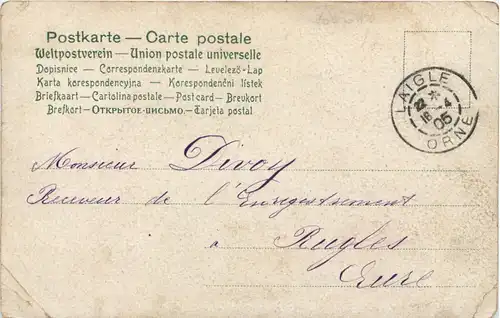 Postkarte — Carte postale
Weltpostverein — Union postale universelle
Dopisnice — Correspondenzkarte — Levelező-Lap
Karta korespondencyjna — Korespondenční lístek
Briefkaart — Cartolina postale — Postcard — Brevkort
Brefkort — ОТКРЫТОЕ-ПИСЬМО. — Tarjeta postal
LAIGLE
22 * 4
18 05
ORNE
Monsieur Divoy
Receveur de l'Enregistrement
à Rugles
Eure